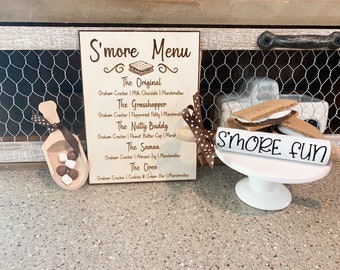 S'more Menu
The Original
Graham Cracker | Milk Chocolate | Marshmallow
The Grasshopper
Graham Cracker | Peppermint Patty | Marshmallow
The Nutty Buddy
Graham Cracker | Peanut Butter Cup | Marsh
The Samoa
Graham Cracker | Almond Joy | Marshmallow
The Oreo
Graham Cracker | Cookies & Cream Bar | Marshmallow
S'MORE FUN